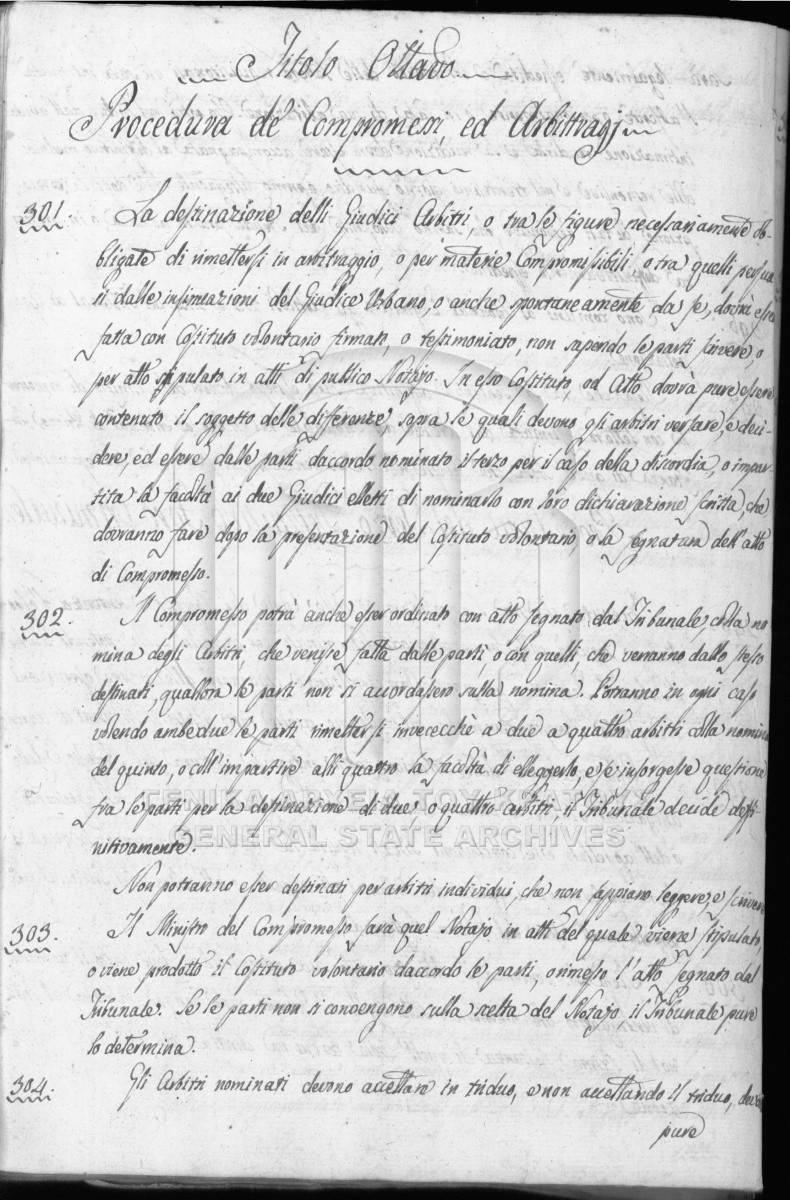 Titolo Ottavo
Procedura de' Compromessi, ed Arbitraggj
301. La destinazione delli Giudici Arbitri, o tra le figure necessariamente ob-
bligate di rimettersi in arbitraggio, o per materie Compromissibili o tra quelli persua-
si dalle insinuazioni del Giudice Urbano, o anche spontaneamente da se, dovrà esser
fatta con Costituto volontario firmato, o testimoniato, non sapendo le parti scrivere, o
per atto stipulato in atti di publico Notajo. In esso Costituto, od Atto dovrà pure essere
contenuto il soggetto delle differenze, sopra le quali devono gli arbitri versare, e deci-
dere, ed essere dalle parti daccordo nominato il terzo per il caso della discordia, o impar-
tita la facoltà ai due Giudici eletti di nominarlo con loro dichiarazione scritta che
dovranno fare dopo la presentazione del Costituto volontario, o la segnatura dell'atto
di Compromesso.
302. Il Compromesso potrà anche esser ordinato con atto segnato dal Tribunale, colla no-
mina degli Arbitri, che venisse fatta dalle parti o con quelli, che verranno dallo stesso
destinati, quallora le parti non si accordassero sulla nomina. Potranno in ogni caso
volendo ambedue le parti rimettersi invececchè a due a quattro arbitri colla nomina
del quinto, o coll'impartire alli quattro la facoltà di elleggerlo, e se insorgesse questione
fra le parti per la destinazione di due, o quattro arbitri, il Tribunale decide deffi-
nitivamente.
Non potranno esser destinati per arbitri individui, che non sappiano leggere, e scrivere
303. Il Ministro del Compromesso sarà quel Notajo in atti del quale viene stipulato,
o viene prodotto il Costituto volontario daccordo le parti, o rimesso l'atto segnato dal
Tribunale. Se le parti non si convengono sulla scelta del Notajo il Tribunale pure
lo determina.
304. Gli Arbitri nominati devono accettare in triduo, e non accettando il triduo,
pure
ΓΕΝΙΚΑ ΑΡΧΕΙΑ ΤΟΥ ΚΡΑΤΟΥΣ
GENERAL STATE ARCHIVES